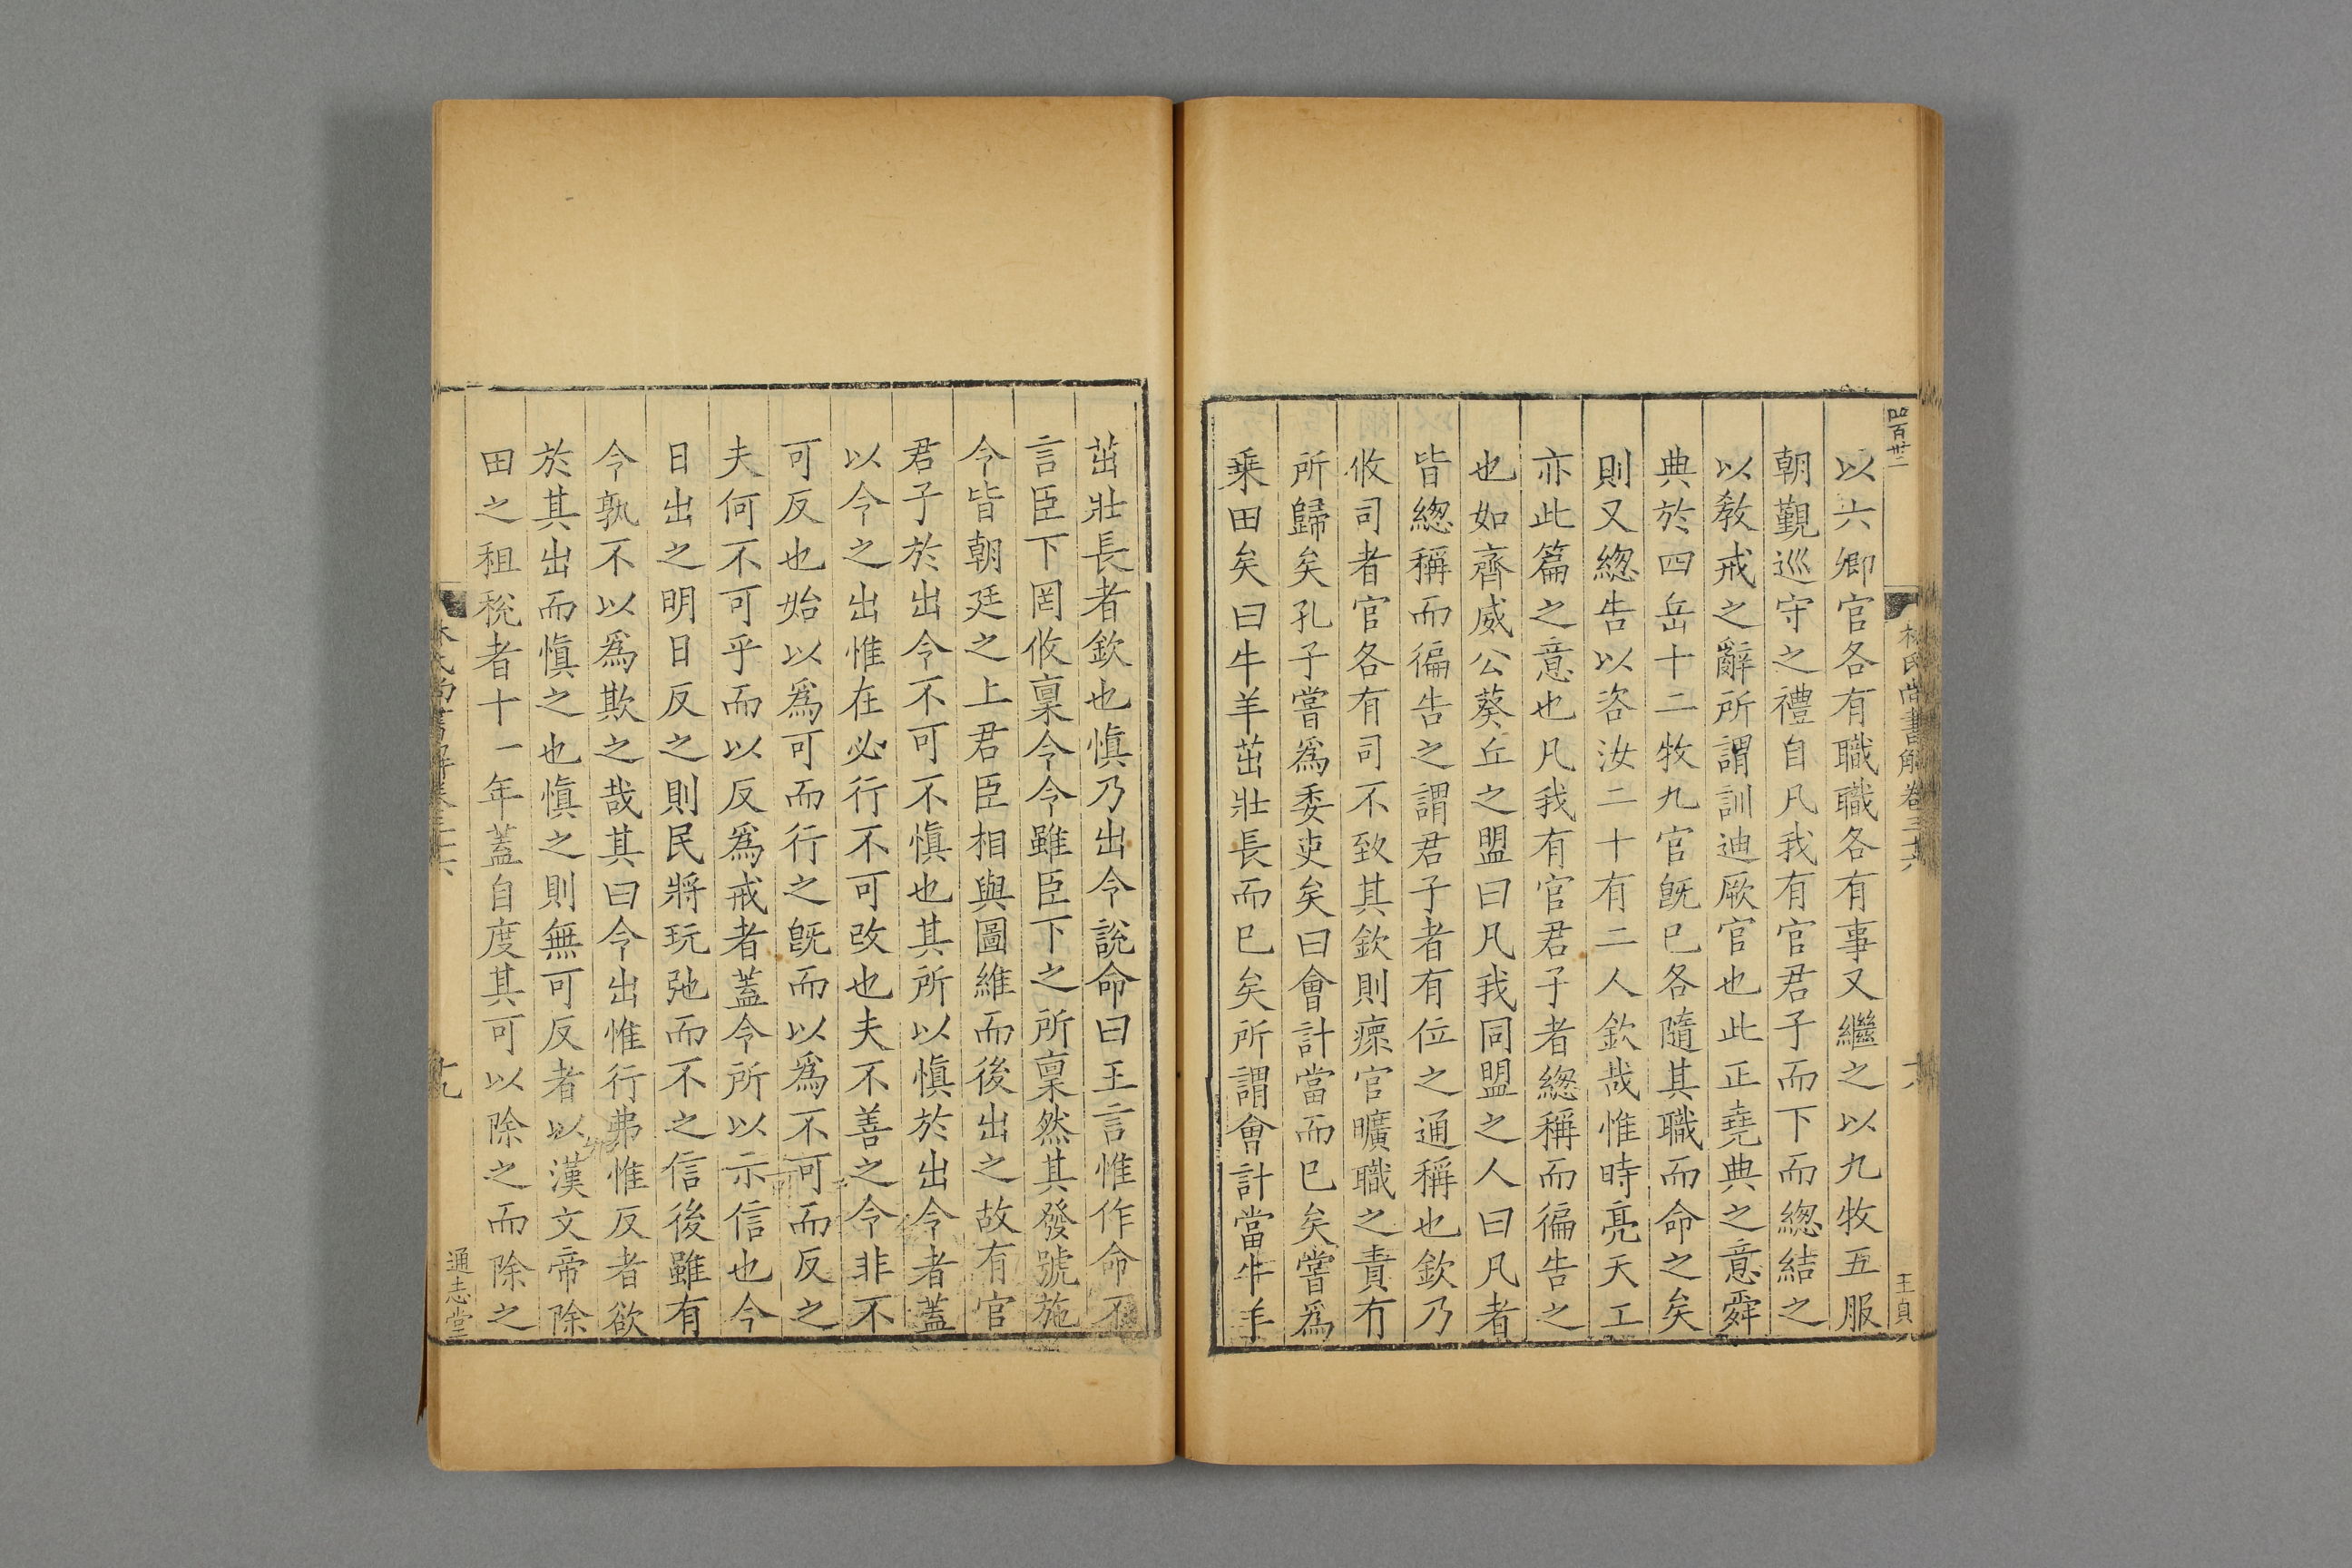 林氏尚書解卷三十六
王貞
以六卿官各有職職各有事又繼之以九牧五服
朝覲巡守之禮自凡我有官君子而下而緫結之
以敎戒之辭所謂訓迪厥官也此正堯典之意舜
典於四岳十二牧九官旣已各隨其職而命之矣
則又緫告以咨汝二十有二人欽哉惟時亮天工
亦此篇之意也凡我有官君子者緫稱而徧告之
也如齊威公葵丘之盟曰凡我同盟之人曰凡者
皆緫稱而徧告之謂君子者有位之通稱也欽乃
攸司者官各有司不致其欽則瘝官曠職之責有
所歸矣孔子嘗爲委吏矣曰會計當而已矣嘗爲
乗田矣曰牛羊茁壯長而已矣所謂會計當牛羊
茁壯長者欽也愼乃出令說命曰王言惟作命不
言臣下罔攸稟令令雖臣下之所稟然其發號施
令皆朝廷之上君臣相與圖維而後出之故有官
君子於出令不可不愼也其所以愼於出令者蓋
以令之出惟在必行不可改也夫不善之令非不
可反也始以爲可而行之旣而以爲不可而反之
夫何不可乎而以反爲戒者蓋令所以示信也今
日出之明日反之則民將玩弛而不之信後雖有
令孰不以爲欺之哉其曰令出惟行弗惟反者欲
於其出而愼之也愼之則無可反者以漢文帝除
田之租稅者十一年蓋自度其可以除之而除之
林氏尚書解卷三十六
十九
通志堂